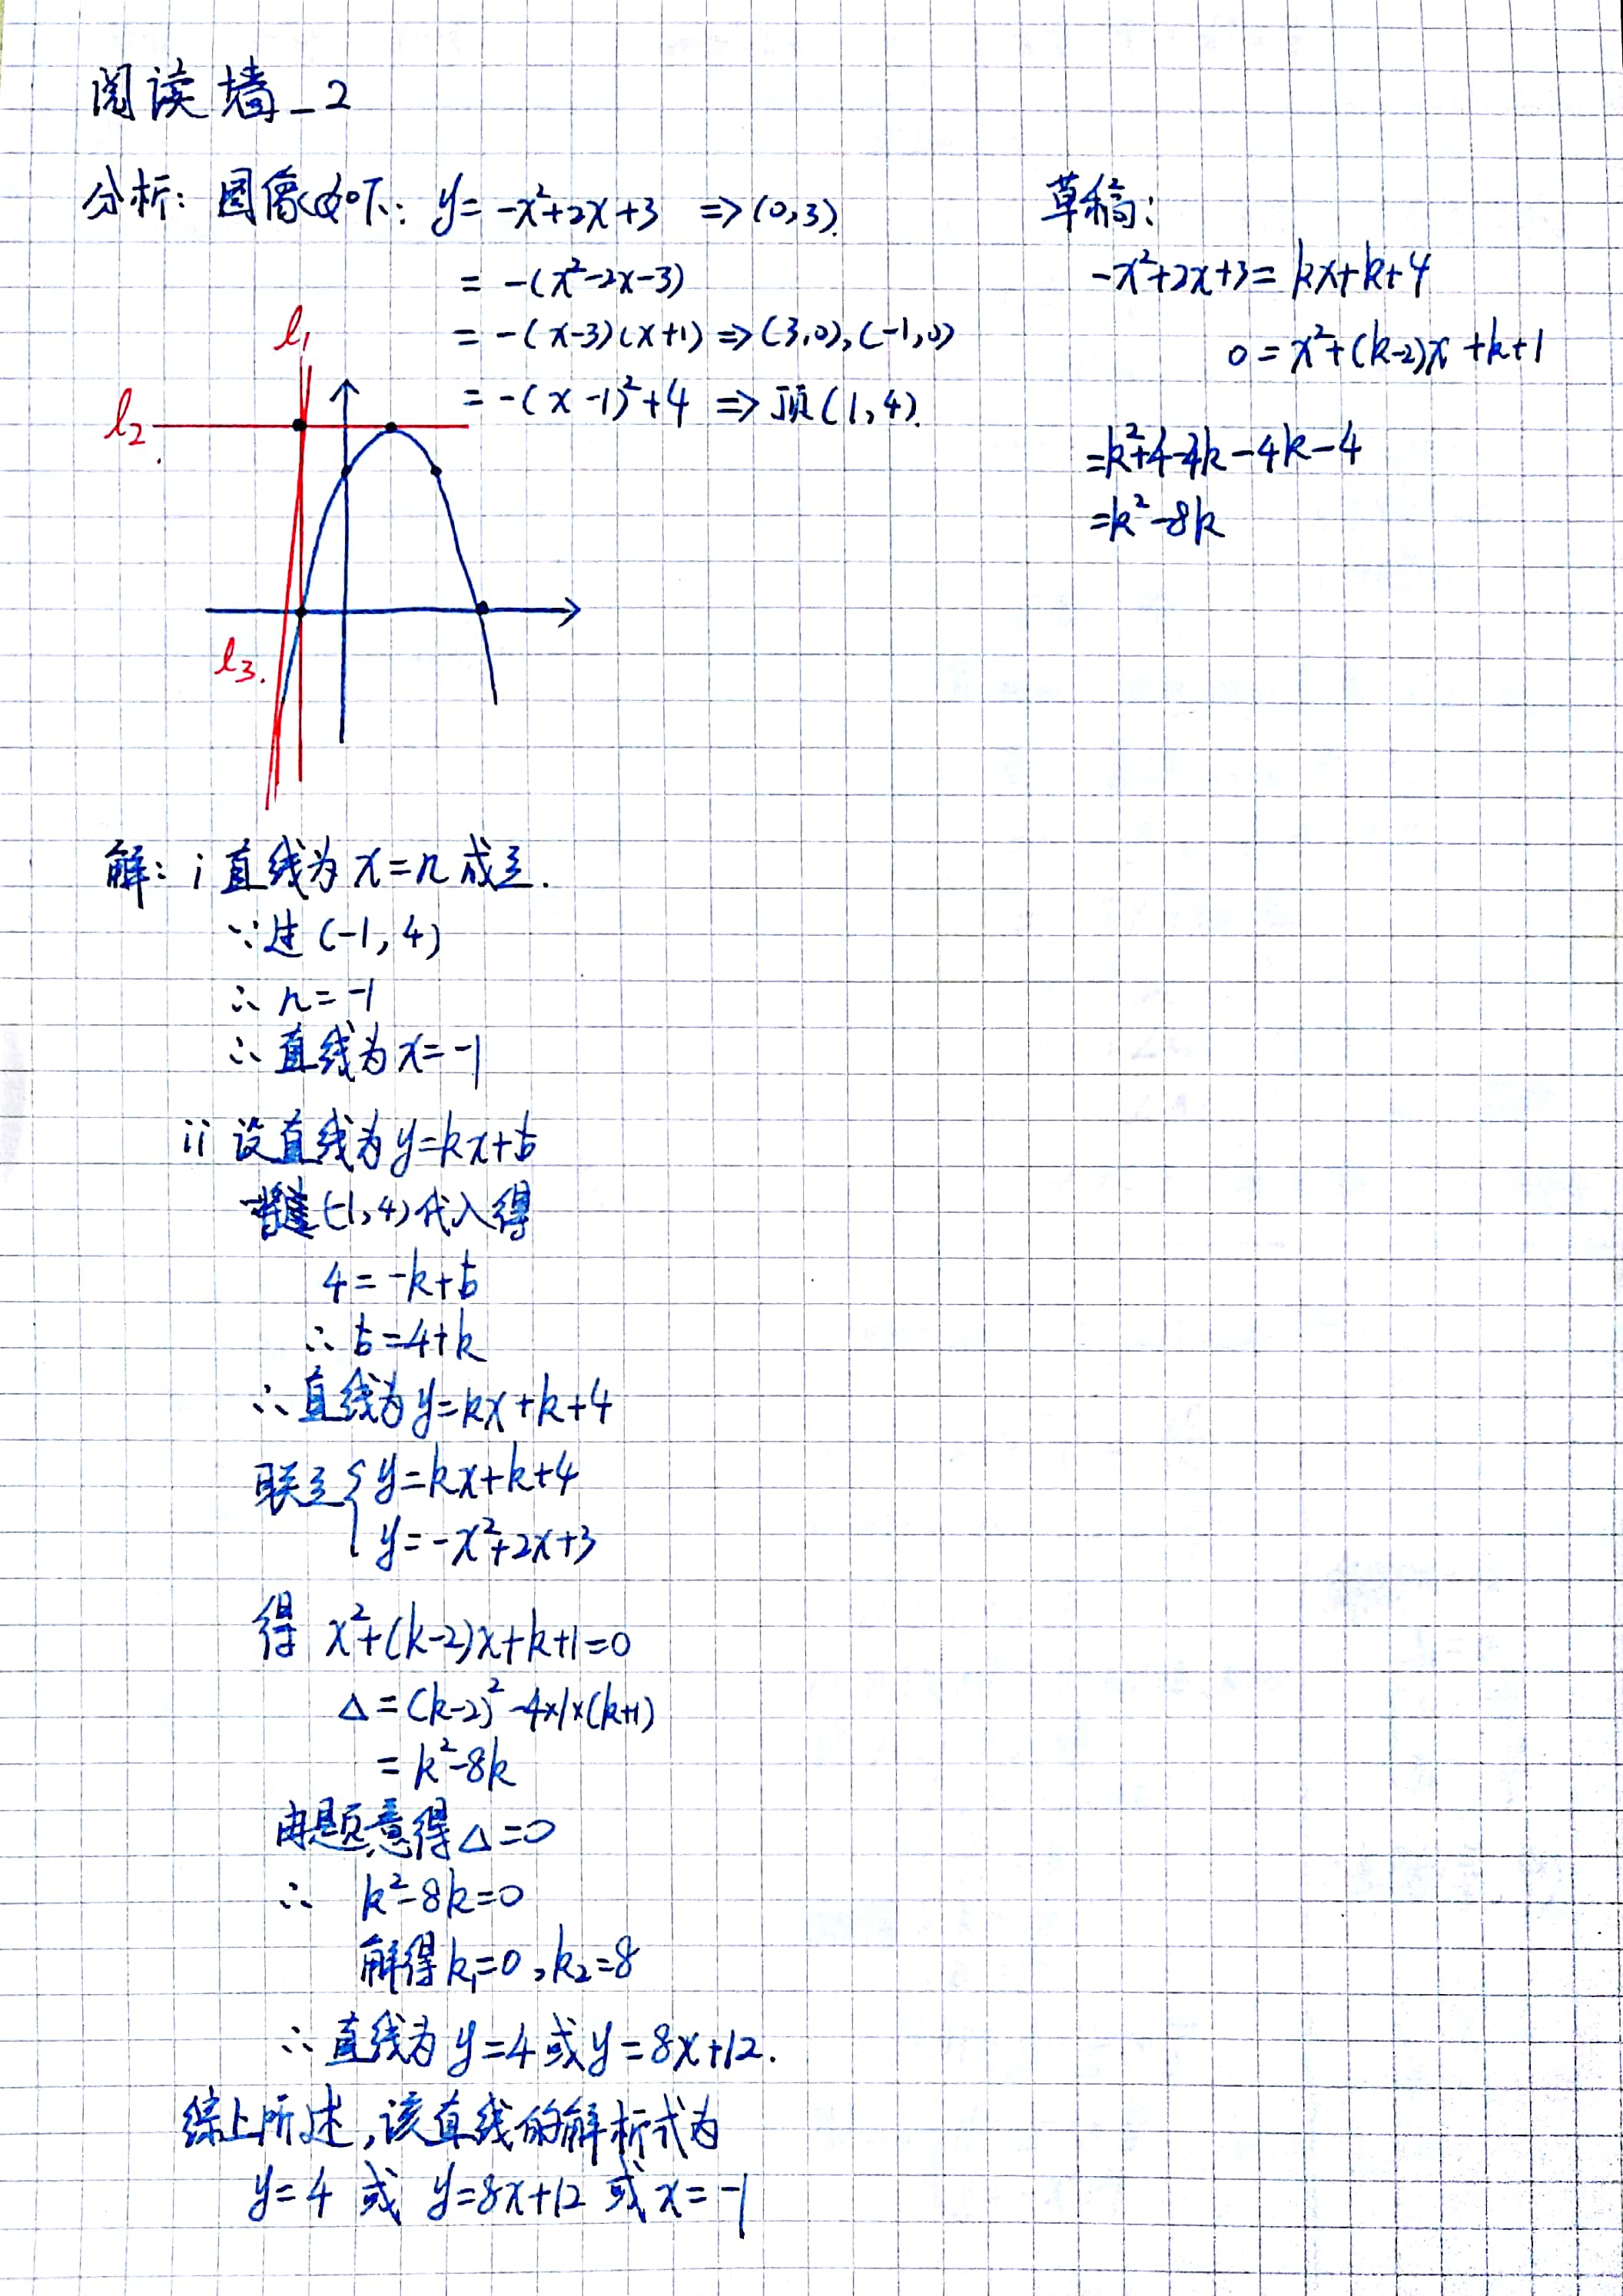 阅读墙_2
分析: 图像如下: y = -x²+2x+3 => (0,3).
= -(x²-2x-3)
= -(x-3)(x+1) => (3,0), (-1,0)
= -(x-1)²+4 => 顶(1,4).
l₁
l₂
l₃.
草稿:
-x²+2x+3 = kx+k+4
0 = x²+(k-2)x+k+1
=k²+4-4k-4k-4
=k²-8k
解: i 直线为 x=n 成立.
∵过 (-1,4)
∴ n=-1
∴ 直线为 x=-1
ii 设直线为 y=kx+b
(-1,4)代入得
4=-k+b
∴ b=4+k
∴ 直线为 y=kx+k+4
联立{ y=kx+k+4
y=-x²+2x+3
得 x²+(k-2)x+k+1=0
Δ=(k-2)²-4×1×(k+1)
= k²-8k
由题意得Δ=0
∴ k²-8k=0
解得k₁=0,k₂=8
∴ 直线为 y=4 或 y=8x+12.
综上所述,该直线的解析式为
y=4 或 y=8x+12 或 x=-1